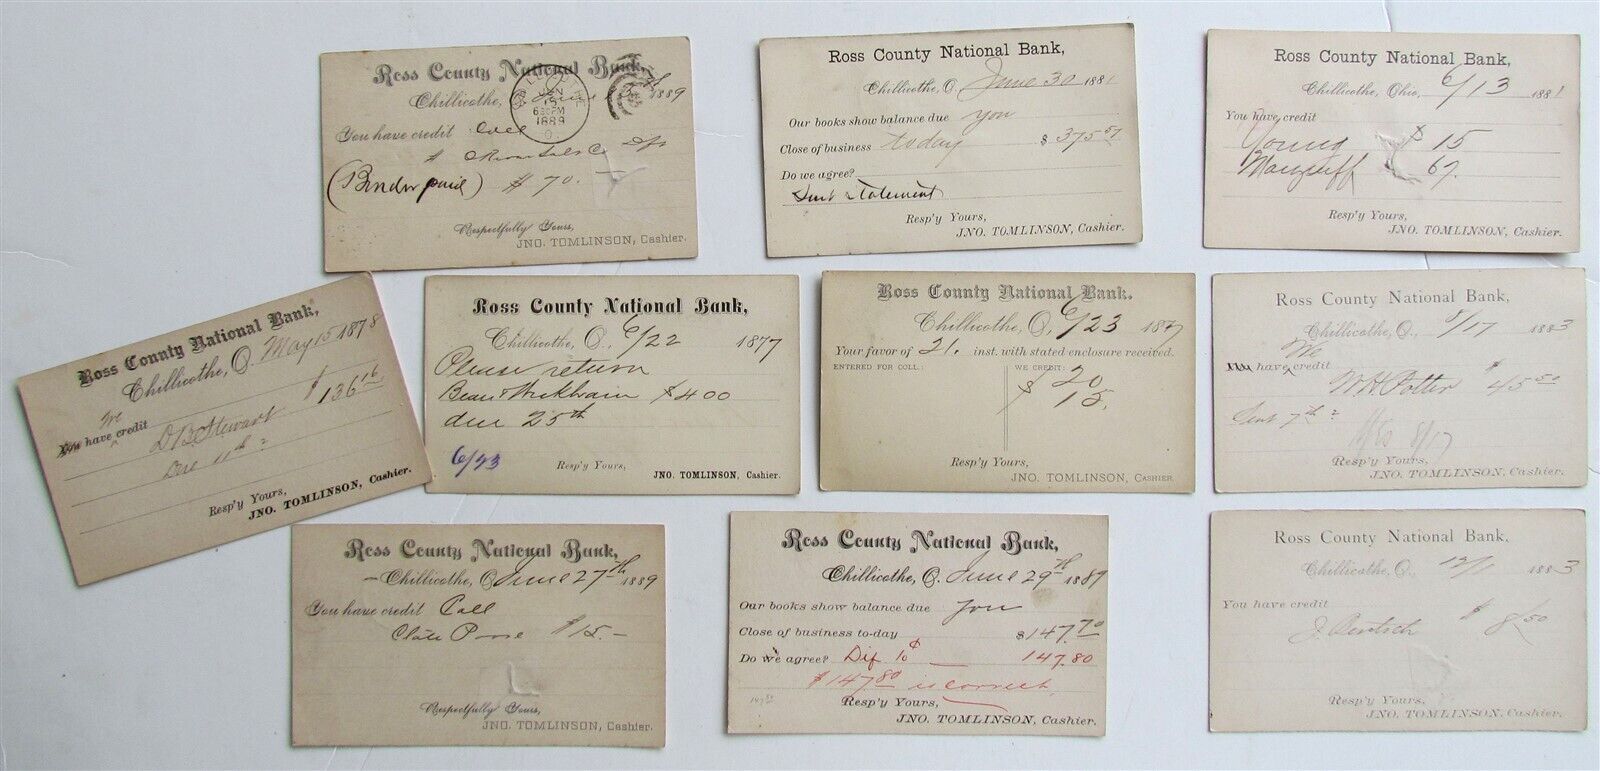 Ross County National Bank,
Chillicothe, O. 1889
JUN
6 30 PM
1889
O.
You have credit Coll
(Bndr paid) $ 70. –
Respectfully Yours,
JNO. TOMLINSON, Cashier.
Ross County National Bank,
Chillicothe, O. June 30 1881
Our books show balance due you
Close of business today $ 375 57
Do we agree?
Sent Statement
Resp'y Yours,
JNO. TOMLINSON, Cashier.
Ross County National Bank,
Chillicothe, Ohio, 6/13 1881
You have credit
Young $ 15
67.
Resp'y Yours,
JNO. TOMLINSON, Cashier.
Ross County National Bank,
Chillicothe, O. May 15 1878
We
You have credit $ 136 16
D B Stewart
Due 11th
Resp'y Yours,
JNO. TOMLINSON, Cashier.
Ross County National Bank,
Chillicothe, O., 6/22 1877
Please return
$400
due 25th
6/23
Resp'y Yours,
JNO. TOMLINSON, Cashier.
Ross County National Bank.
Chillicothe, O., 6/23 1877
Your favor of 21. inst. with stated enclosure received.
ENTERED FOR COLL: WE CREDIT:
$ 20
15.
Resp'y Yours,
JNO. TOMLINSON, CASHIER
Ross County National Bank,
Chillicothe, O., 8/17 1883
We
You have credit
W H Potter $ 45 50
Sent 7th
8/17
Resp'y Yours,
JNO. TOMLINSON, Cashier.
Ross County National Bank,
Chillicothe, O. June 27th 1889
You have credit Coll
$ 15. –
Respectfully Yours,
JNO. TOMLINSON, Cashier.
Ross County National Bank,
Chillicothe, O. June 29th 1889
Our books show balance due you
Close of business to-day $147.70
Do we agree? Dif 10¢ 147.80
$147 80 is correct
147 80
Resp'y Yours,
JNO. TOMLINSON, Cashier.
Ross County National Bank,
Chillicothe, O., 12/1 1883
You have credit
$ 8 50
Resp'y Yours,
JNO. TOMLINSON, Cashier.